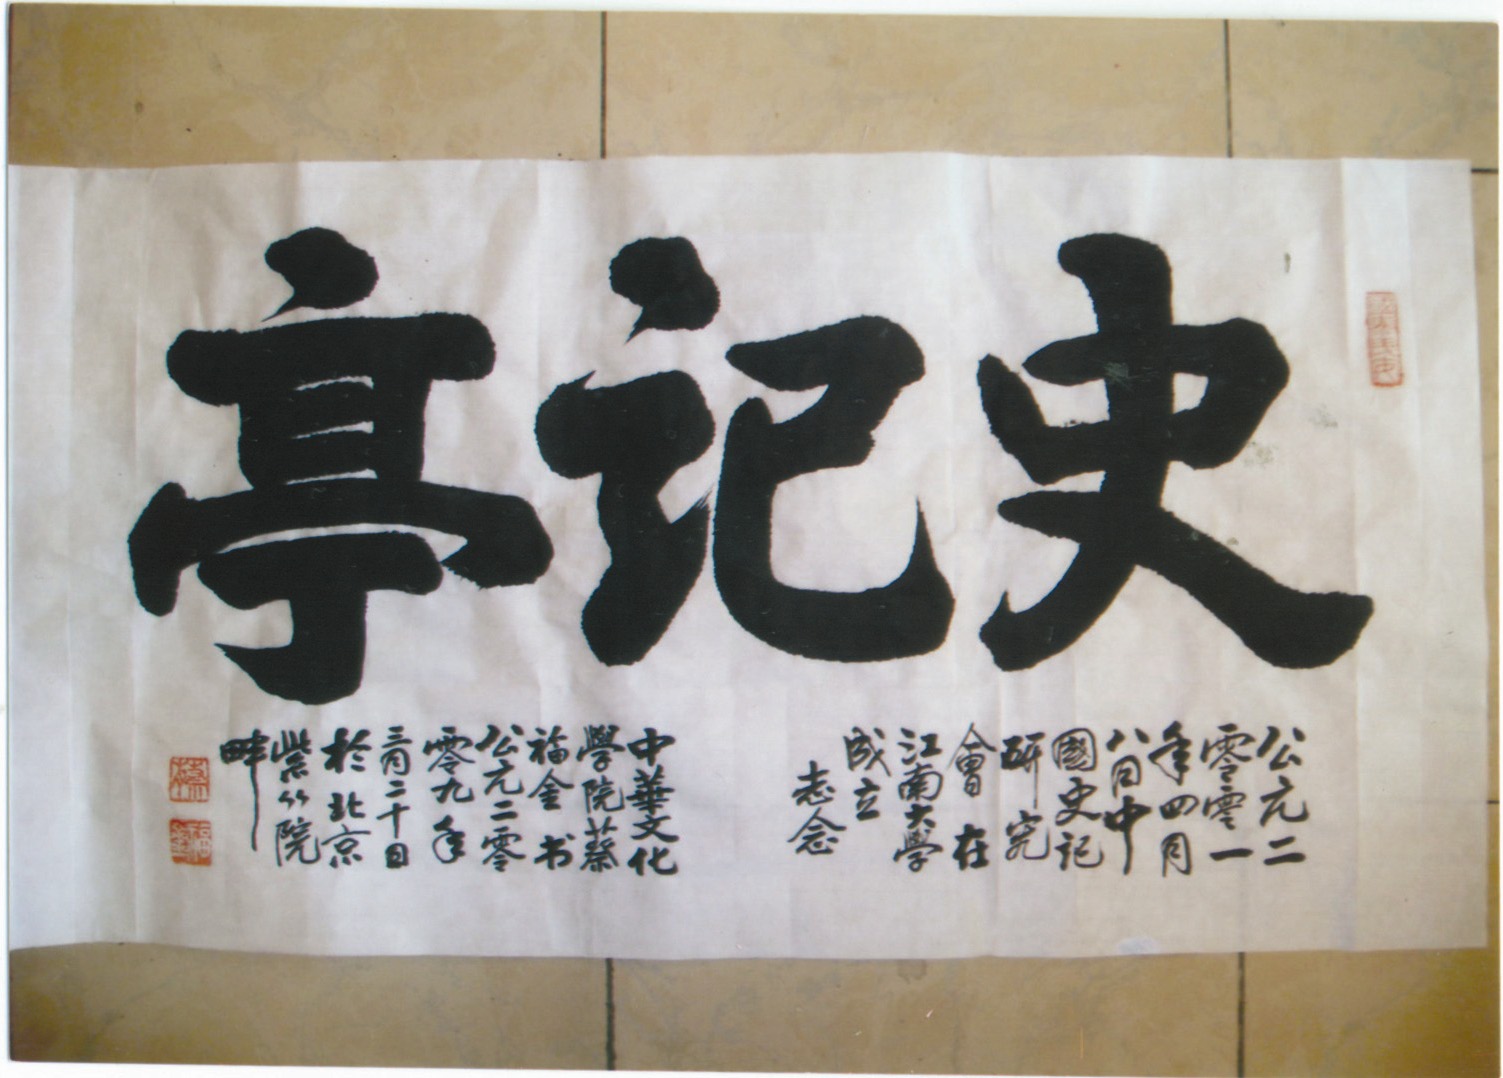 史记亭
公元二
零零一
年四月
八日中
國史记
研究
會在
江南大学
成立
志念
中華文化
學院蔡
福金书
公元二零
零九年
三月二十日
於北京
紫竹院
畔